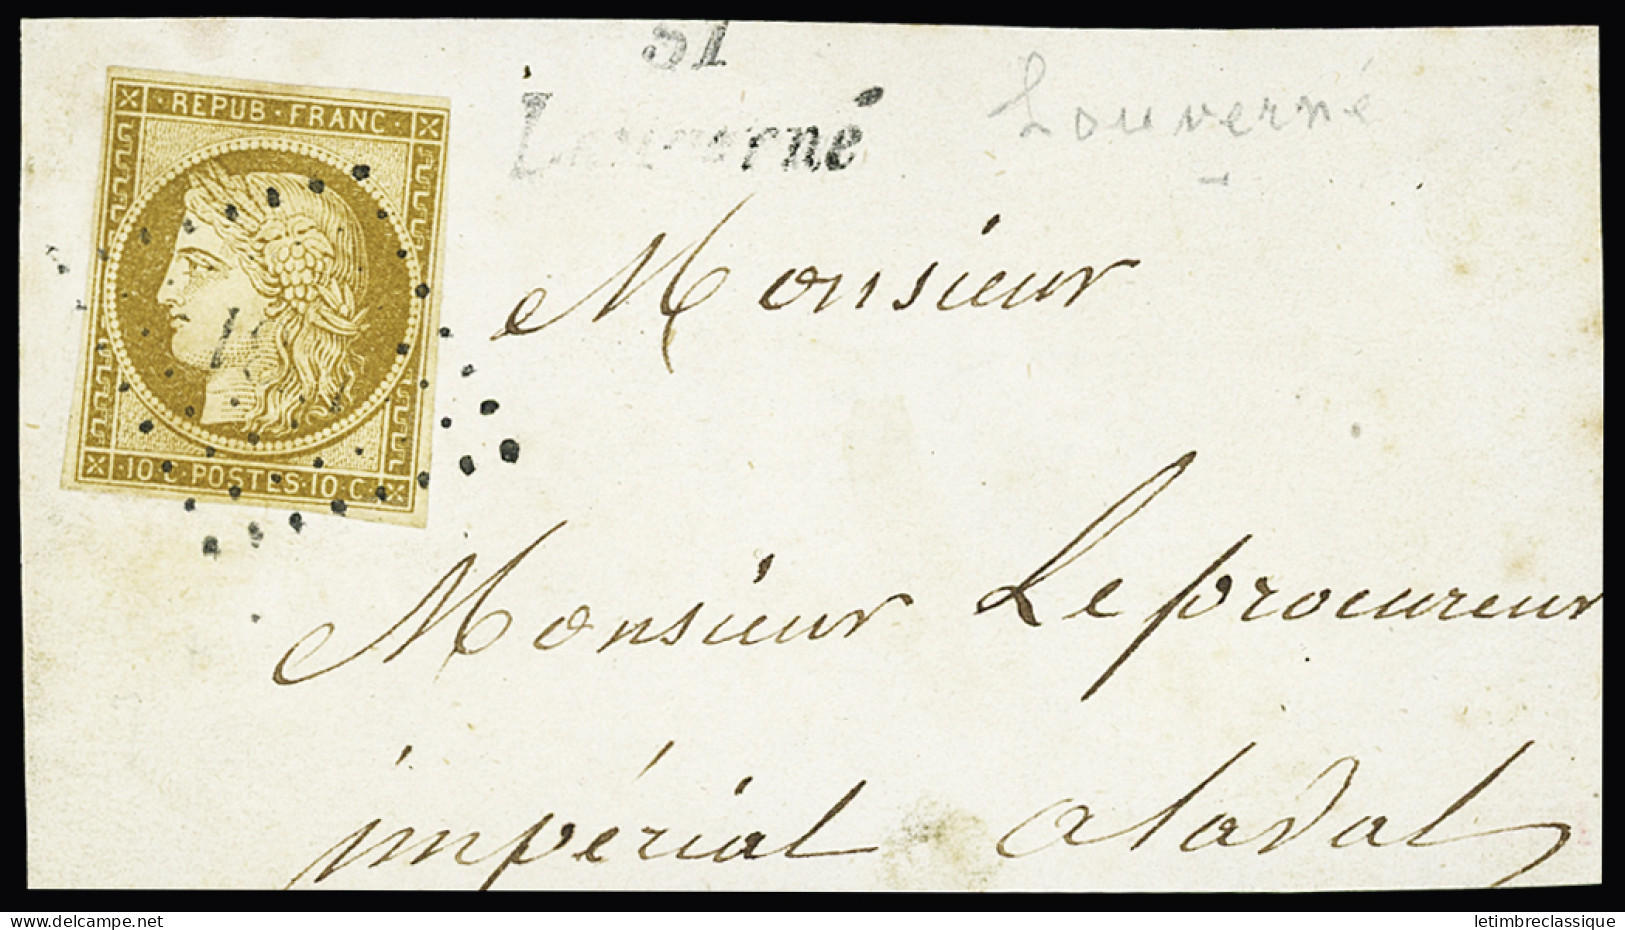 51
Louverné
Louverné
· REPUB · FRANC ·
· 10 · C · POSTES · 10 · C ·
Monsieur
Monsieur Le procureur
impérial a laval
delcampe.net
letimbreclassique